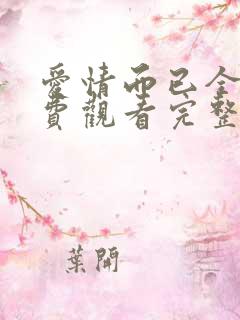 愛情而已全
費觀看完整
葉開